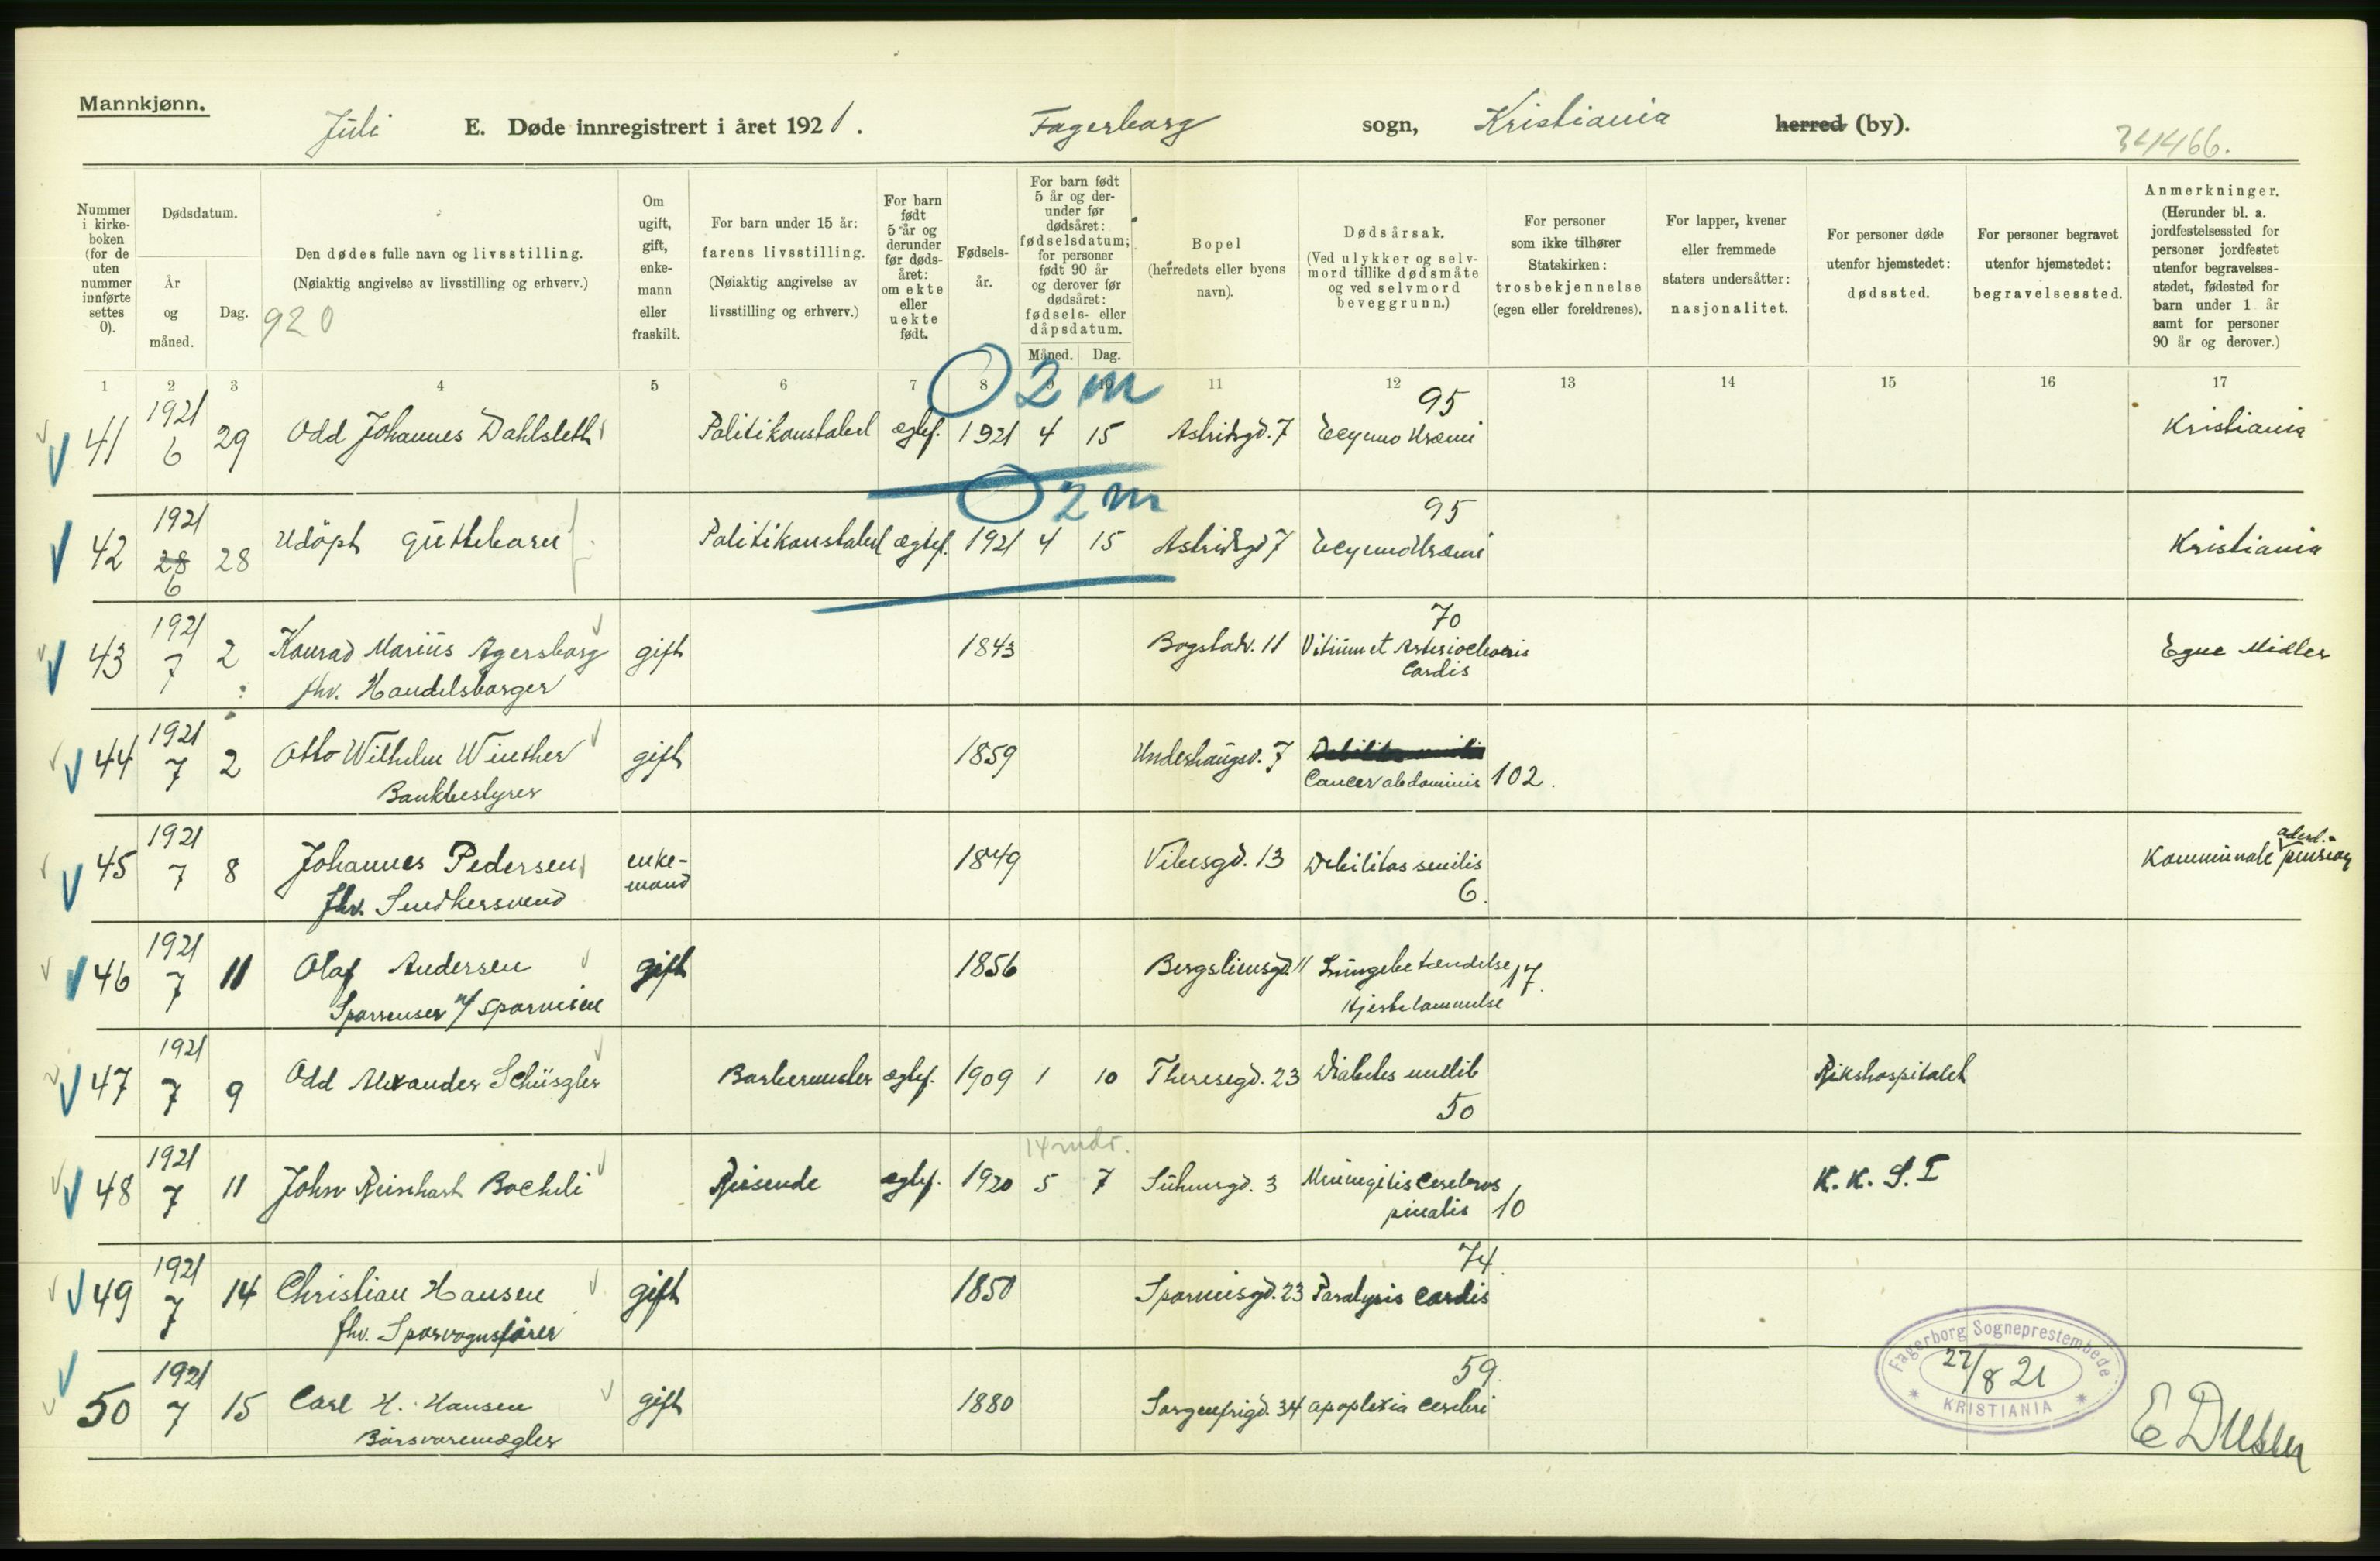 Mannkjønn.
Juli E. Døde innregistrert i året 1921. Fagerborg sogn, Kristiania herred (by).
34466.
Nummer i kirke-boken (for de uten nummer innførte settes 0).
Dødsdatum.
År og måned.
Dag.
Den dødes fulle navn og livsstilling.
(Nøiaktig angivelse av livsstilling og erhverv.)
920
Om ugift, gift, enke-mann eller fraskilt.
For barn under 15 år:
farens livsstilling.
(Nøiaktig angivelse av livsstilling og erhverv.)
For barn født 5 år og derunder før døds-året: om ekte eller uekte født.
Fødsels-år.
For barn født 5 år og der-under før dødsåret: fødselsdatum; for personer født 90 år og derover før dødsåret: fødsels- eller dåpsdatum.
Måned. Dag.
Bopel
(herredets eller byens navn).
Dødsårsak.
(Ved ulykker og selv-mord tillike dødsmåte og ved selvmord beveggrunn.)
For personer som ikke tilhører Statskirken:
trosbekjennelse
(egen eller foreldrenes).
For lapper, kvener eller fremmede staters undersåtter:
nasjonalitet.
For personer døde utenfor hjemstedet:
dødssted.
For personer begravet utenfor hjemstedet:
begravelsessted.
Anmerkninger.
(Herunder bl. a. jordfestelsessted for personer jordfestet utenfor begravelses-stedet, fødested for barn under 1 år samt for personer 90 år og derover.)
1 2 3 4 5 6 7 8 9 10 11 12 13 14 15 16 17
0 2 m
95
41 1921 6 29 Odd Johannes Dahlsleth Politikonstabel ægtef. 1921 4 15 Astridsgd. 7 Ecyema Uræmi Kristiania
0 2 m
95
42 1921 28 6 28 Udöpt Guttebarn Politikonstabel ægtef. 1921 4 15 Astridsgd 7 Ecyema Uræmi Kristiania
70
43 1921 7 2 Konrad Marius Agersborg gift 1843 Bogstadv. 11 Vitium et Arteriosclerosis Egne Midler
fhv. Handelsborger Cordis
44 1921 7 2 Otto Wilhelm Winther gift 1859 Underhaugsv. 7
Bankbestyrer Cancer abdominis 102.
45 1921 7 8 Johannes Pedersen enke-mand 1849 Vibesgd. 13 Debilitas senilis Kommunale alderd. pension
fhv. Snedkersvend 6.
46 1921 7 11 Olaf Andersen gift 1856 Bergsliensgd. 11 Lungebetændelse 17.
Sporrenser v/ Sporveien Hjertelammelse
47 1921 7 9 Odd Alexander Schüszler Barbermester ægtef. 1909 1 10 Theresegd. 23 Diabetes mellit Rikshospitalet
50
14 mdr.
48 1921 7 11 John Reinhart Bocheli Reisende ægtef. 1920 5 7 Suhmsgd. 3 Meningitis Cerebros K. K. S. I
pinalis 10
74.
49 1921 7 14 Christian Hansen gift 1850 Sporveisgd. 23 Paralysis Cordis
fhv. Sporvognsfører
59.
50 1921 7 15 Carl H. Hansen gift 1880 Sorgenfrigd. 34 Apoplexia Cerebri
Børsvaremægler
Fagerborg Sogneprestembede
22/8 21
* KRISTIANIA *